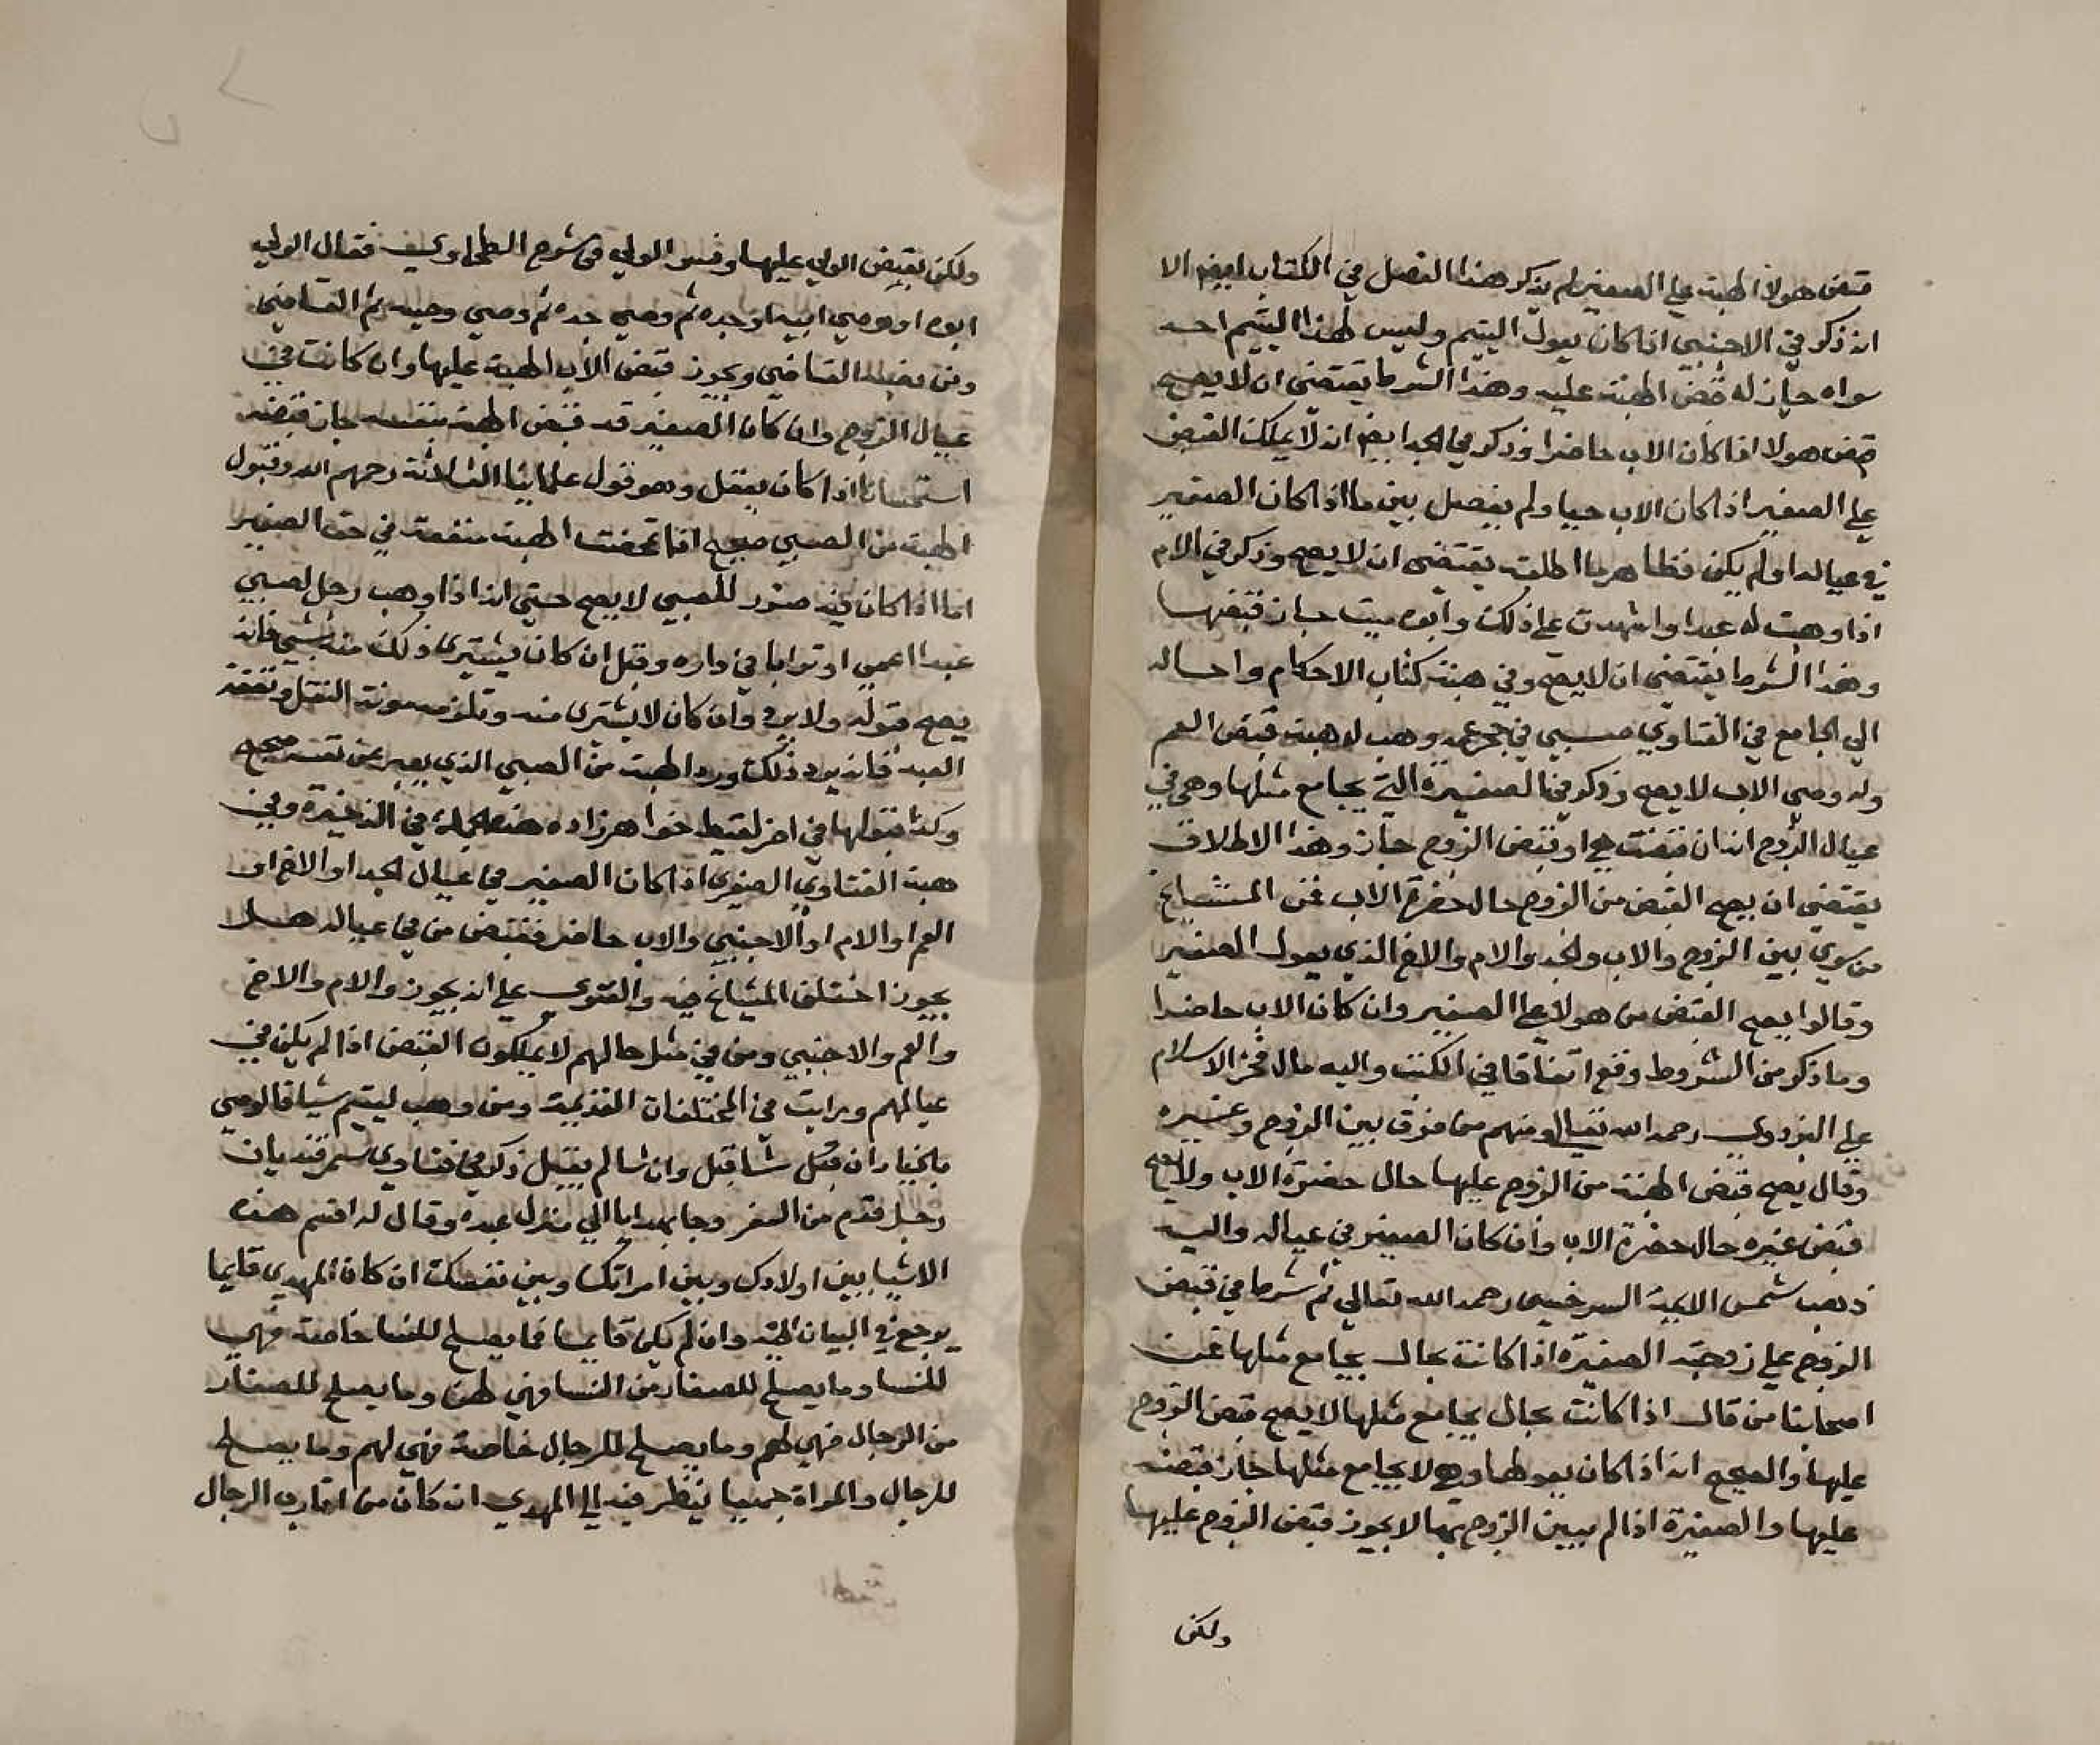 قبض هولا الهبة علي الصغير لم يذكر هذا الفصل في الكتاب ايضا الا
انه ذكر في الاجنبي اذا كان يعول اليتم وليس لهذا اليتيم احد
سواه جاز له قبض الهبة عليه وهذا الشرط يقتضي ان لا يصح
قبض هولا اذا كان الاب حاضرا وذكر في الجد ايضا انه لا يملك القبض
علي الصغير اذا كان الاب حيا ولم يفصل بين ما اذا كان الصغير
في عياله او لم يكن فظاهر ما اطلق يقتضي ان لا يصح وذكر في الام
اذا وهبت له عبدا واشهدت علي ذلك وابوه ميت جاز قبضها
وهذا الشرط يقتضي ان لا يصح وفي هبة كتاب الاحكام واحاله
الي الجامع في الفتاوي صبي في حجر عمه وهب له هبة قبض العم
وله وصي الاب لا يصح وذكر في الصغيرة التي يجامع مثلها وهي في
عيال الزوج انه ان قبضت هي او قبض الزوج جاز وهذا الاطلاق
يقتضي ان يصح القبض من الزوج حال حضرة الاب فمن المشايخ
من سوي بين الزوج والاب والجد والام والاخ الذي يعول الصغير
وقالوا يصح القبض من هولا علي الصغير وان كان الاب حاضرا
وما ذكر من الشروط وقع اتفاقا في الكتب واليه مال فخر الاسلام
علي البزدوي رحمه الله تعالي ومنهم من فرق بين الزوج وغيره
وقال يصح قبض الهبة من الزوج عليها حال حضرة الاب ولا يصح
قبض غيره حال حضرة الاب وان كان الصغير في عياله واليه
ذهب شمس الايمة السرخسي رحمه الله تعالي ثم شرط في قبض
الزوج علي زوجته الصغيرة اذا كانت بحال يجامع مثلها فمن
اصحابنا من قال اذا كانت بحال يجامع مثلها لا يصح قبض الزوج
عليها والصحيح انه اذا كان يعولها وهي لا يجامع مثلها جاز قبضه
عليها والصغيرة اذا لم يبين الزوج بها لا يجوز قبض الزوج عليها
ولكن
ولكن يقبض الولي عليها وفسر الولي في شرح الطحاوي فقال الولي
ابوه او وصي ابيه او جده ثم وصي جده ثم وصي وصيه ثم القاضي
ومن نصبه القاضي ويجوز قبض الاب الهبة عليها وان كانت في
عيال الزوج وان كان الصغير قد قبض الهبة بنفسه جاز قبضه
استحسانا اذا كان يعقل وهو قول علماينا الثلاثة رحمهم الله وقبول
الهبة من الصبي صحيح اذا تمحضت الهبة منفعة في حق الصغير
اما اذا كان فيه ضرر للصبي لا يصح حتي انه اذا وهب رجل لصبي
عبدا اعمي او ترابا في داره وقبل ان كان يشتري ذلك منه بشي فانه
يصح قبوله ولا يرد وان كان لا يشتري منه وتلزمه مونة النقل ونفقة
العبد فانه يرد ذلك ورد الهبة من الصبي الذي يعبر عن نفسه صحيح
وكذا قبولها في اخر لقيط خواهرزاده هذه الجملة في الذخيرة وفي
هبة الفتاوي الصغري اذا كان الصغير في عيال الجد او الاخ او
العم او الام او الاجنبي والاب حاضر فقبض من في عياله هل
يجوز اختلف المشايخ فيه والفتوي علي انه يجوز والام والاخ
والعم والاجنبي ومن في مثل حالهم لا يملكون القبض اذا لم يكن في
عيالهم ورايت في المختلفات القديمة ومن وهب ليتيم شيا فالوصي
بالخيار ان شا قبل وان شا لم يقبل ذكر في فتاوي سمرقنديان
رجل قدم من السفر وجا بهدايا الي منزل عبده وقال له اقسم هذه
الاشيا بين اولادك وبين امراتك وبين نفسك ان كان المهدي قايما
يرجع في البيان اليه وان لم يكن قايما فما يصلح للنسا خاصة فهي
للنسا وما يصلح للصغار من النسا فهي لهن وما يصلح للصغار
من الرجال فهي لهم وما يصلح للرجال خاصة فهي لهم وما يصلح
للرجال والمراة جميعا ينظر فيه الي المهدي ان كان من اقارب الرجال